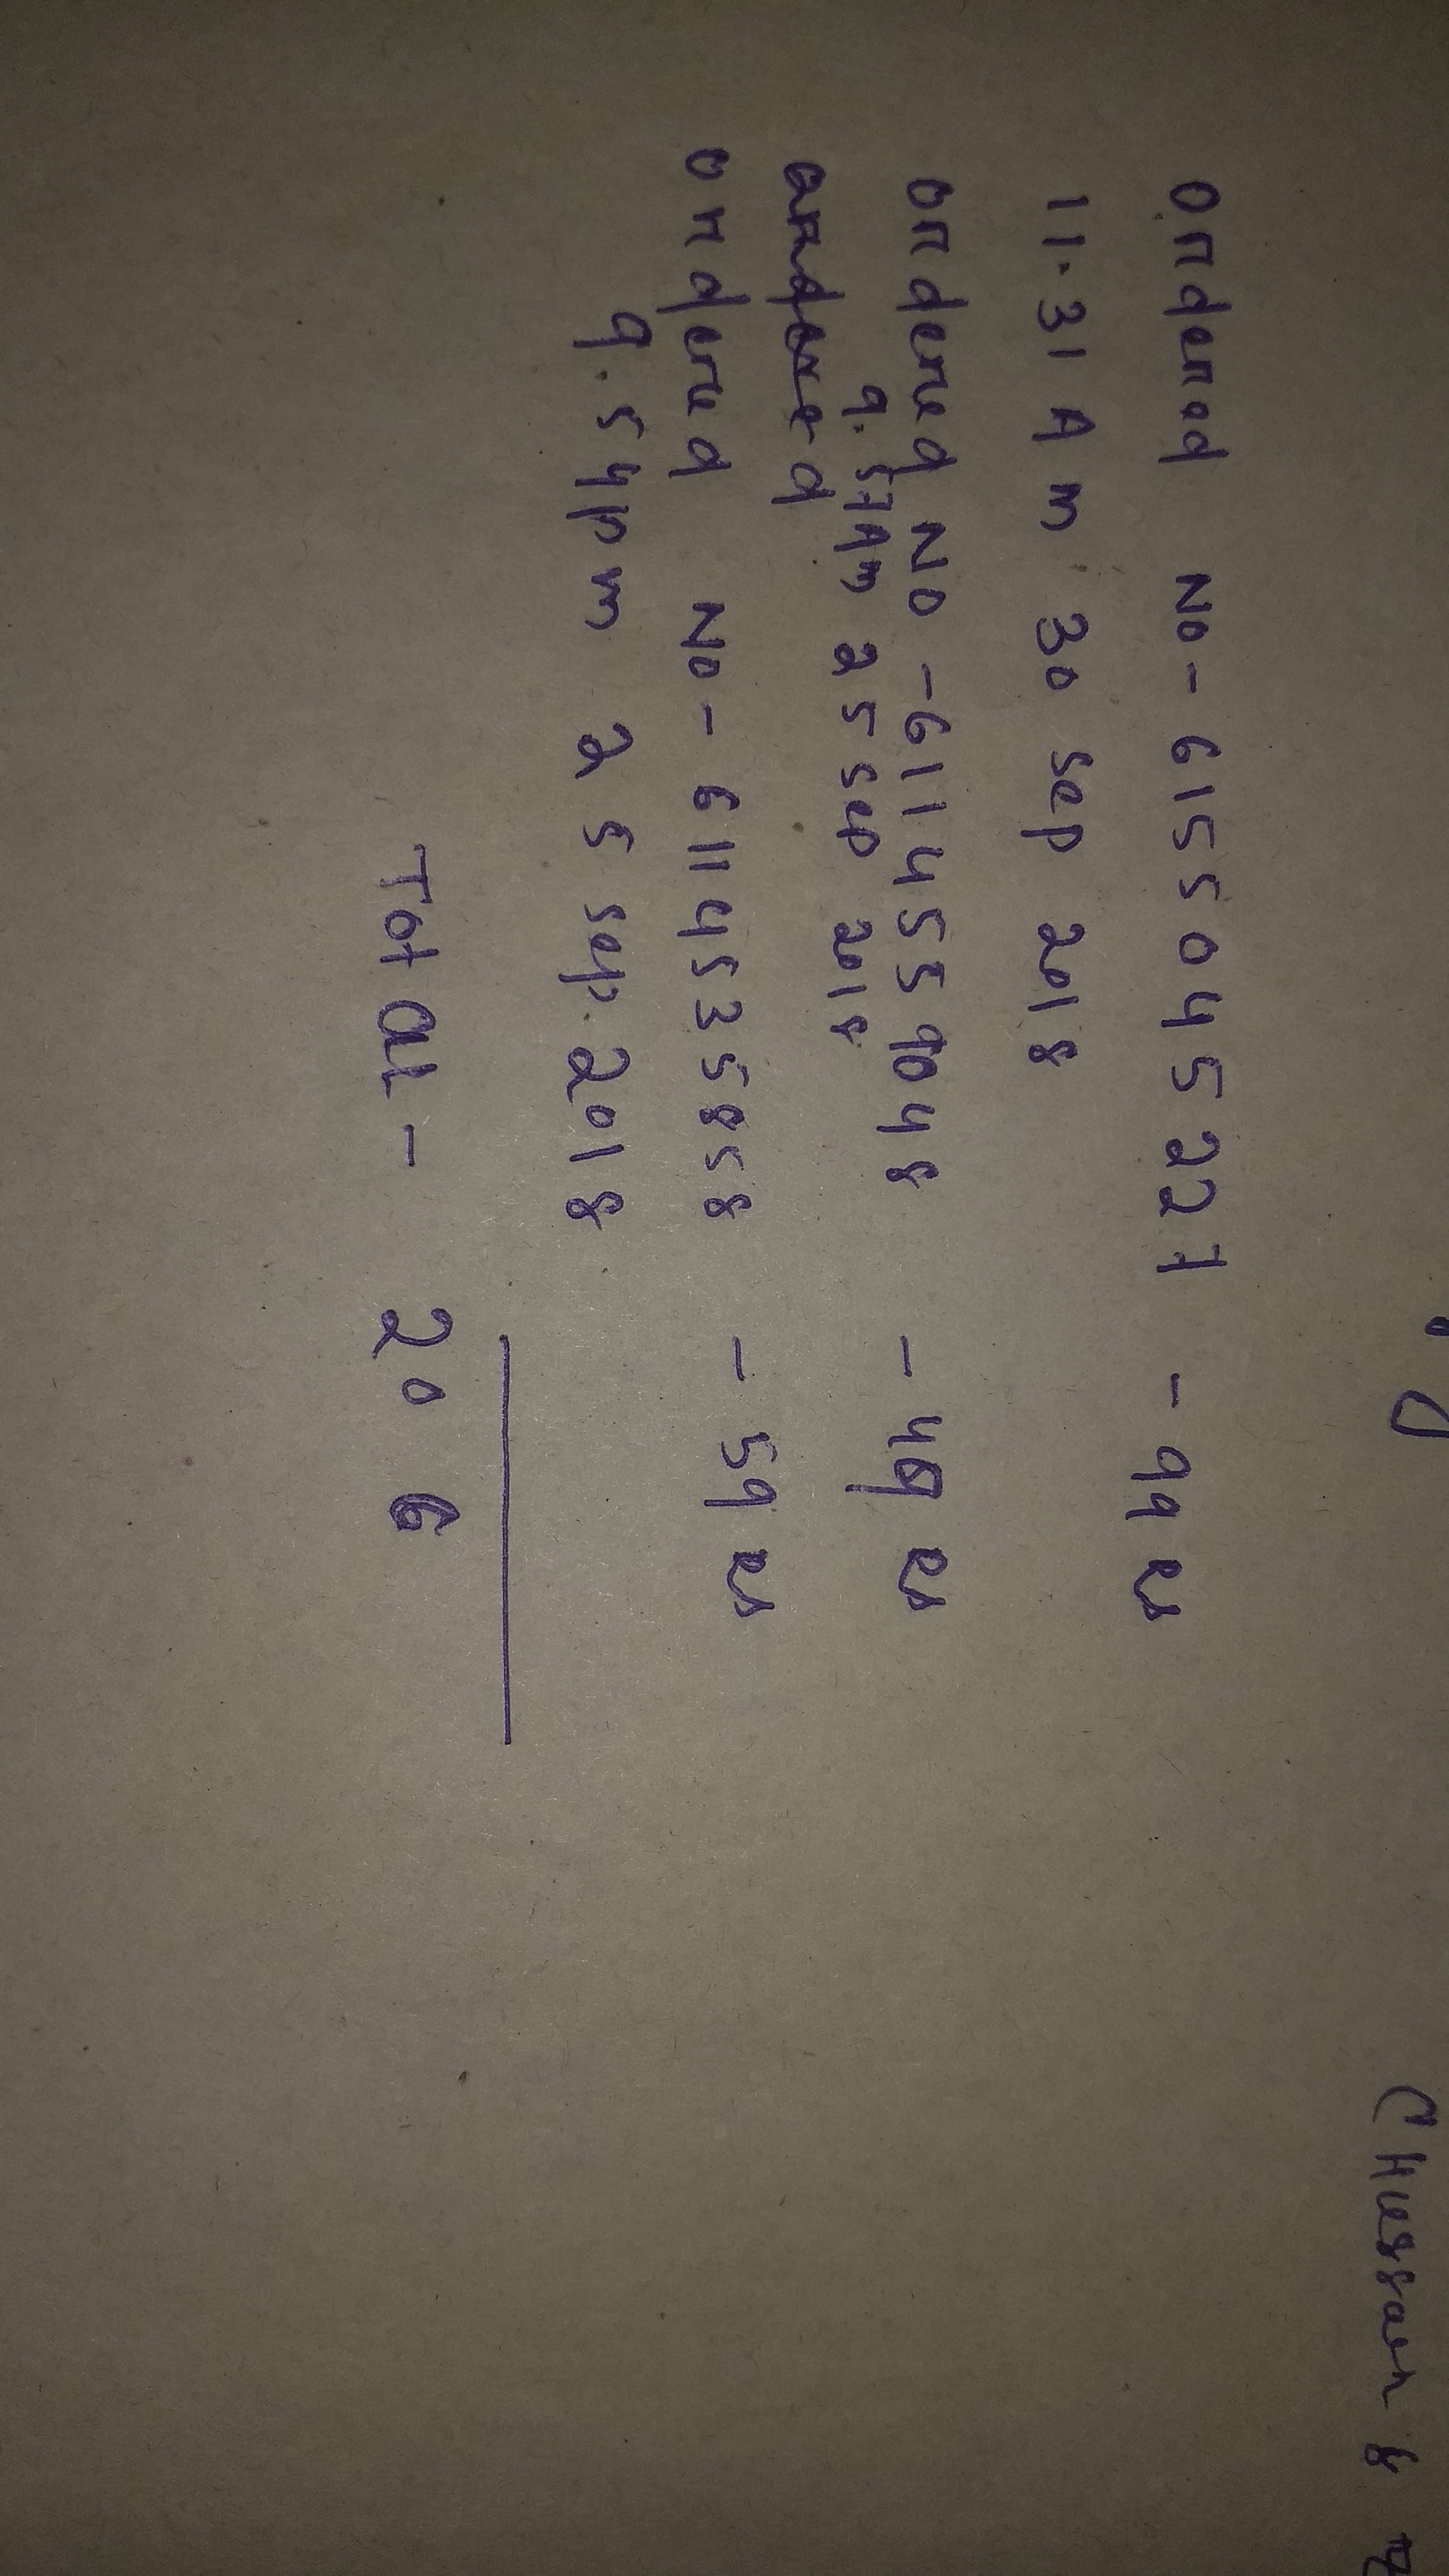 Ordered No - 6155045227 - 99 Rs
11.31 Am 30 sep 2018
Ordered No - 6114559048 - 49 Rs
9.57Am 25 sep 2018
ordered
Ordered No - 6114535858 - 59 Rs
9.54pm 25 sep 2018
Total - 206